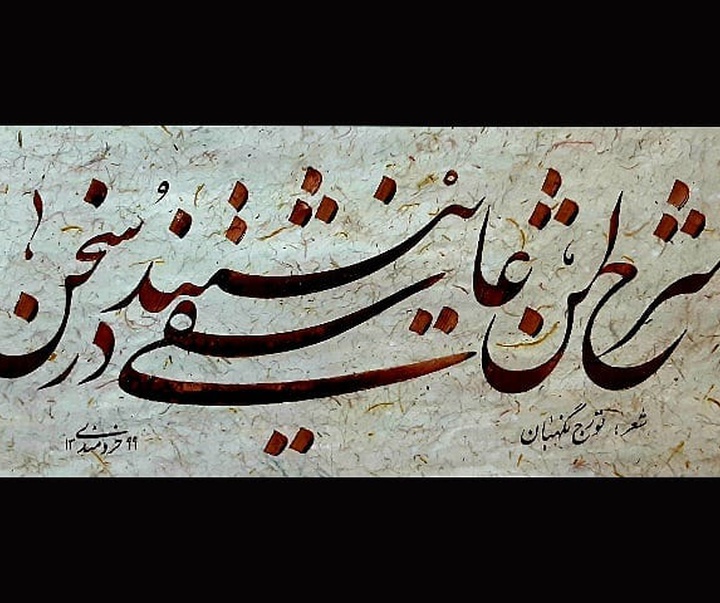 شرح این عاشقی ننشیند در سخن
شعر: تورج نگهبان
۹۹ خردمندی ۱۳